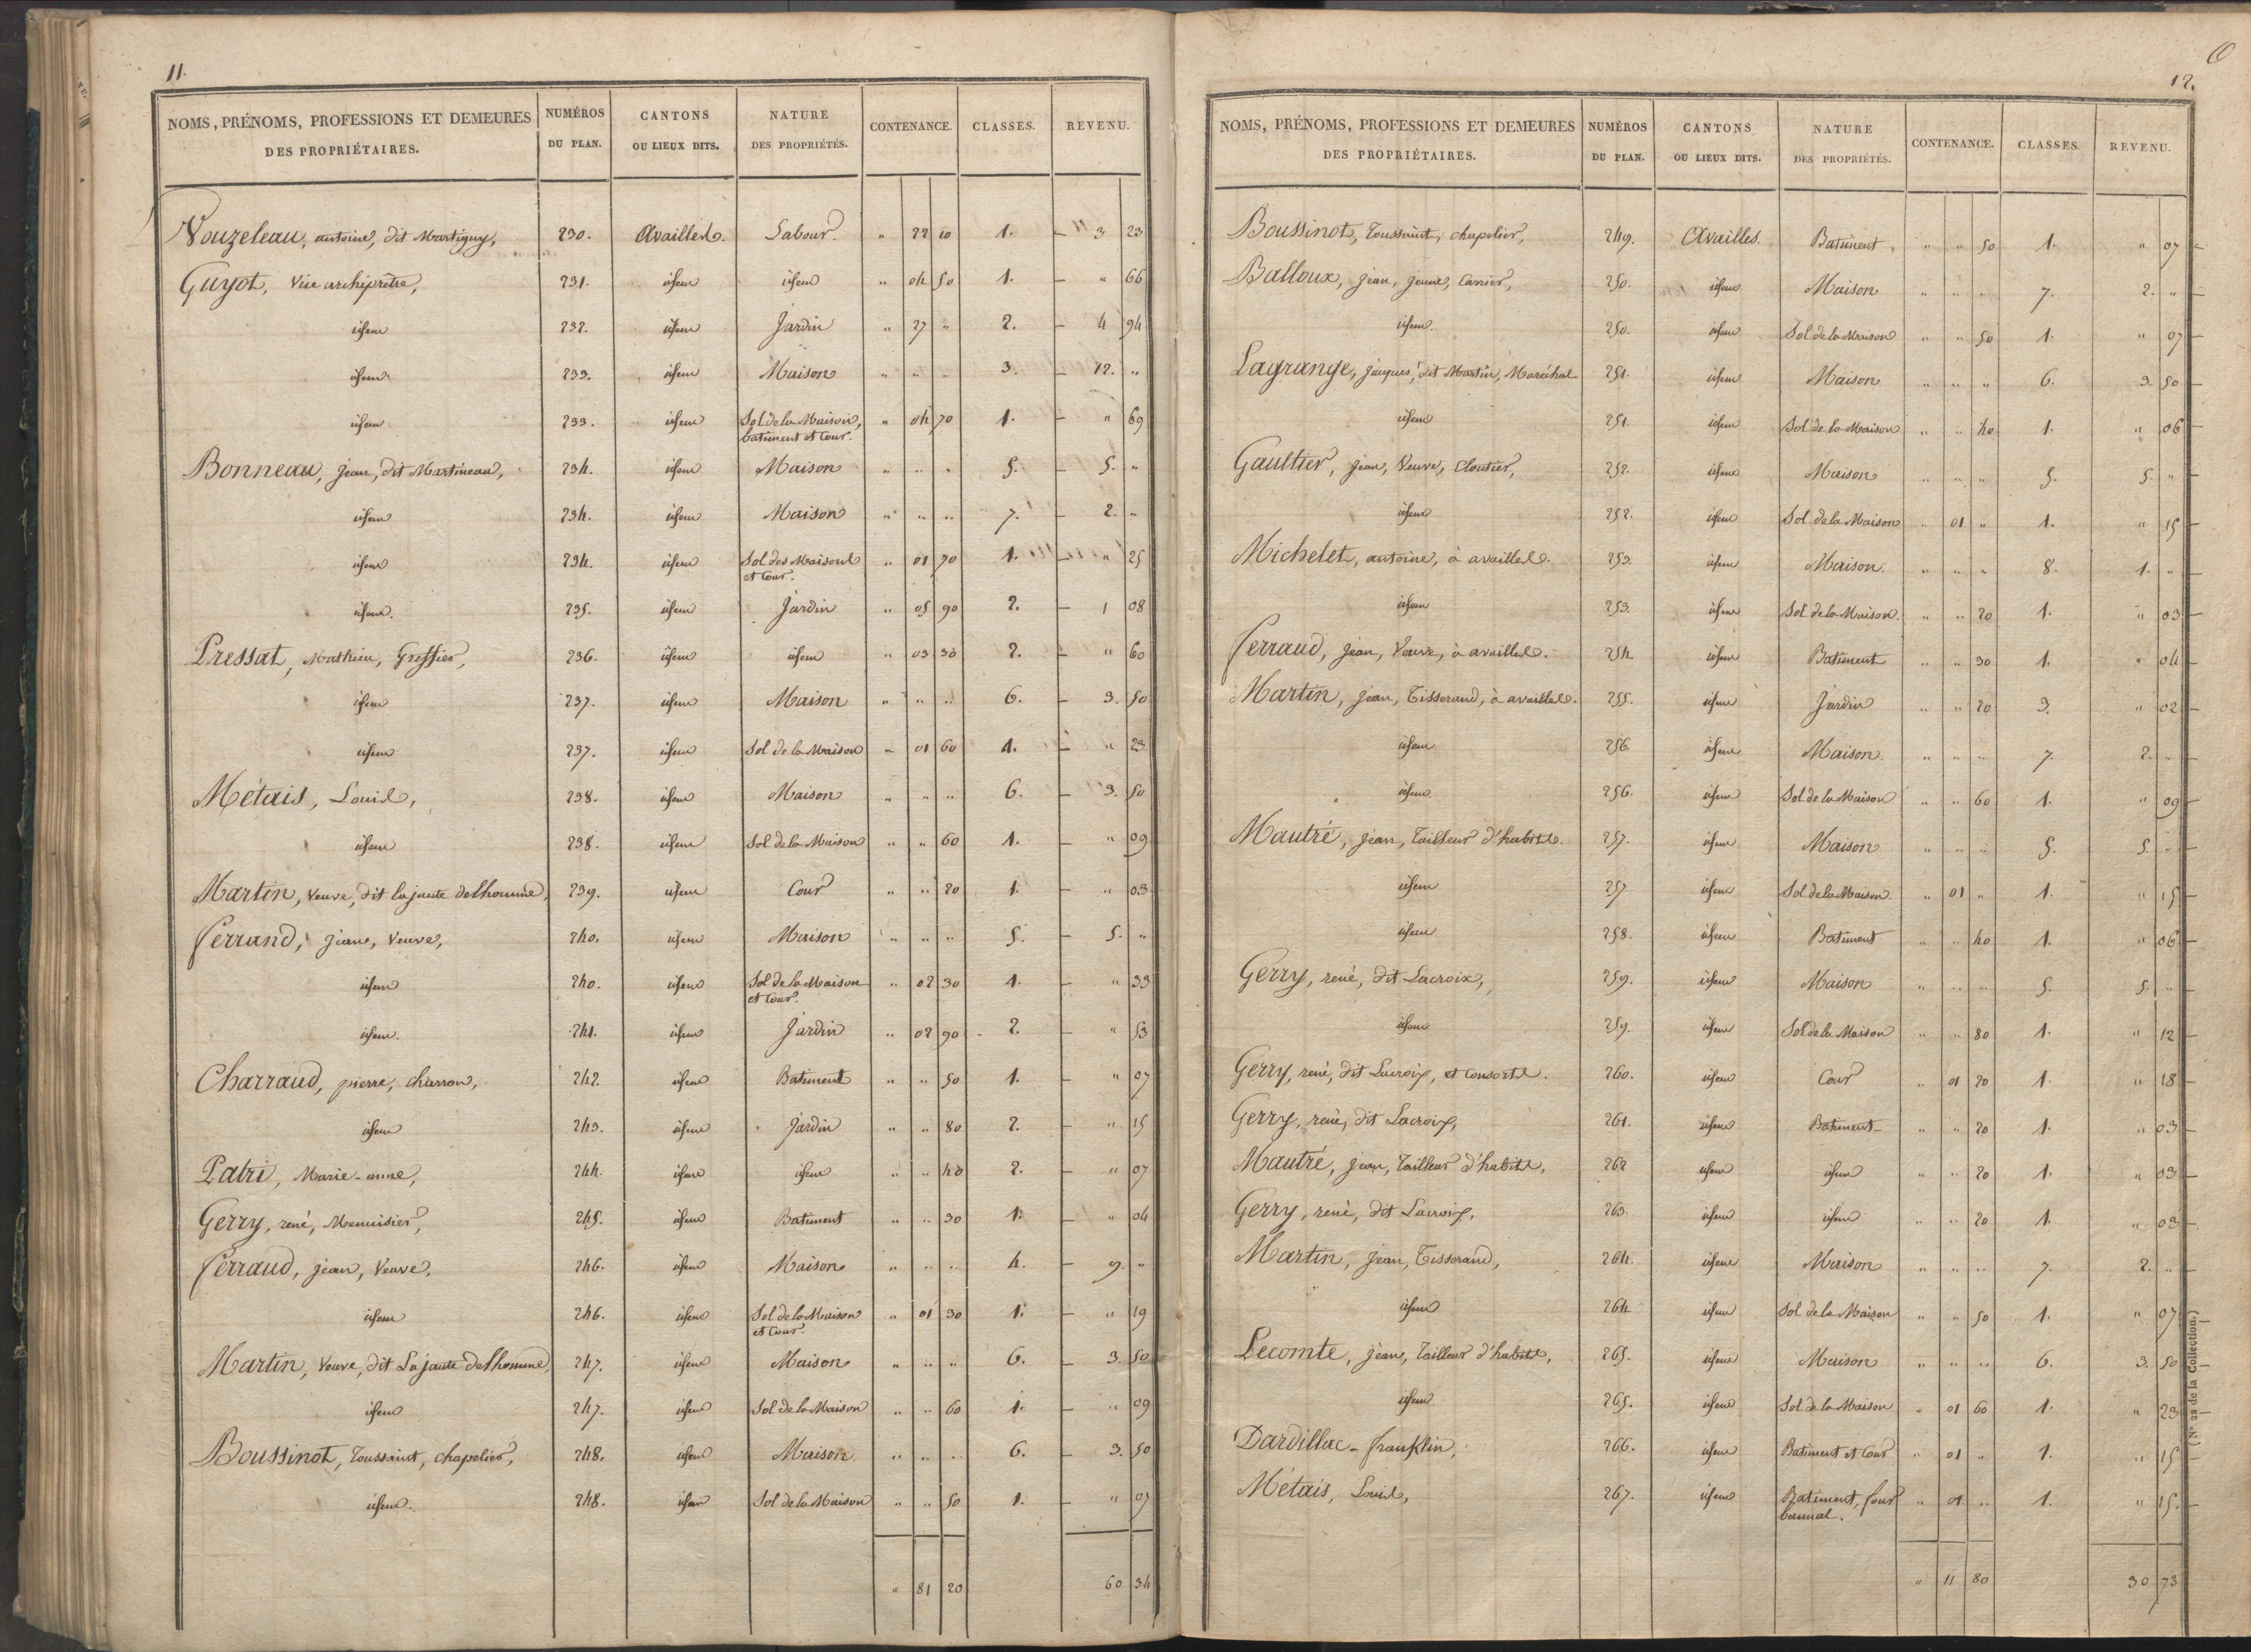 11.
NOMS, PRÉNOMS, PROFESSIONS ET DEMEURES DES PROPRIÉTAIRES. NUMÉROS DU PLAN. CANTONS OU LIEUX DITS. NATURE DES PROPRIÉTÉS. CONTENANCE. CLASSES. REVENU.
Vouzeleau, antoine, dit Martigny, 230. Availles. Labour. " 22 10 1. 3 23
Guyot, Vue archiprêtre, 231. idem idem " 04 50 1. " 66
idem 232. idem Jardin " 27 " 2. 4 94
idem 233. idem Maison " " " 3. 12. "
idem 233. idem Sol de la Maison, batiment et Cour. " 04 70 1. " 69
Bonneau, Jean, dit Martineau, 234. idem Maison " " " 5. 5. "
idem 234. idem Maison " " " 7. 2. "
idem 234. idem Sol des Maisons et Cour. " 01 70 1. " 25
idem. 235. idem Jardin " 05 90 2. 1 08
Pressat, Mathieu, Greffier, 236. idem idem " 03 30 2. " 60
idem 237. idem Maison " " " 6. 3. 50
idem 237. idem Sol de la Maison " 01 60 1. " 23
Métais, Louis, 238. idem Maison " " " 6. 3. 50
idem 238. idem Sol de la Maison " " 60 1. " 09
Martin, Veuve, dit la jaute delhomme, 239. idem Cour " " 20 1. " 03
Ferrand, Jean, Veuve, 240. idem Maison " " " 5. 5. "
idem 240. idem Sol de la Maison et Cour. " 02 30 1. " 33
idem. 241. idem Jardin " 02 90 2. " 53
Charraud, pierre, charron, 242. idem Batiment " " 50 1. " 07
idem 243. idem Jardin " " 80 2. " 15
Patri, Marie-anne, 244. idem idem " " 40 2. " 07
Gerry, rené, Menuisier, 245. idem Batiment " " 30 1. " 04
Ferraud, Jean, Veuve, 246. idem Maison " " " 4. 9. "
idem 246. idem Sol de la Maison et Cour. " 01 30 1. " 19
Martin, Veuve, dit La jaute delhomme, 247. idem Maison " " " 6. 3. 50
idem 247. idem Sol de la Maison " " 60 1. " 09
Boussinot, Toussaint, chapelier, 248. idem Maison " " " 6. 3. 50
idem. 248. idem Sol de la Maison " " 50 1. " 07
" 81 20 60 34
12.
NOMS, PRÉNOMS, PROFESSIONS ET DEMEURES DES PROPRIÉTAIRES. NUMÉROS DU PLAN. CANTONS OU LIEUX DITS. NATURE DES PROPRIÉTÉS. CONTENANCE. CLASSES. REVENU.
Boussinot, Toussaint, chapelier, 249. Availles. Batiment " " 50 1. " 07
Balloux, Jean, Jeune, Carrier, 250. idem Maison " " " 7. 2. "
idem. 250. idem Sol de la Maison " " 50 1. " 07
Lagrange, Jacques, dit Martin, Maréchal 251. idem Maison " " " 6. 3. 50
idem 251. idem Sol de la Maison " " 40 1. " 06
Gaultier, Jean, Veuve, Cloutier, 252. idem Maison " " " 5. 5. "
idem 252. idem Sol de la Maison " 01 " 1. " 15
Michelet, antoine, à availles. 253. idem Maison. " " " 8. 1. "
idem 253. idem Sol de la Maison. " " 20 1. " 03
Ferraud, Jean, Veuve, à availles. 254. idem Batiment " " 30 1. " 04
Martin, Jean, Tisserand, à availles. 255. idem Jardin " " 20 3. " 02
idem 256. idem Maison. " " " 7. 2. "
idem 256. idem Sol de la Maison " " 60 1. " 09
Mautré, Jean, Tailleur d'habits. 257. idem Maison " " " 5. 5. "
idem 257. idem Sol de la Maison. " 01 " 1. " 15
idem 258. idem Batiment " " 40 1. " 06
Gerry, rené, dit Lacroix, 259. idem Maison " " " 5. 5. "
idem 259. idem Sol de la Maison " " 80 1. " 12
Gerry, rené, dit Lacroix, et Consorts. 260. idem Cour " 01 20 1. " 18
Gerry, rené, dit Lacroix, 261. idem Batiment " " 20 1. " 03
Mautré, Jean, Tailleur d'habits, 262 idem idem " " 20 1. " 03
Gerry, rené, dit Lacroix, 263. idem idem " " 20 1. " 03
Martin, Jean, Tisserand, 264. idem Maison " " " 7. 2. "
idem 264 idem Sol de la Maison " " 50 1. " 07
Lecomte, Jean, Tailleur d'habits, 265. idem Maison " " " 6. 3. 50
idem 265. idem Sol de la Maison " 01 60 1. " 23
Dardillac-franklin, 266. idem Batiment et Cour " 01 " 1. " 15
Métais, Louis, 267. idem Batiment, four bannal. " 01 " 1. " 15.
" 11 80 30 73
(N° 22 de la Collection.)